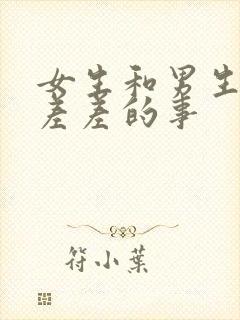 女生和男生
差差的事
符小葉